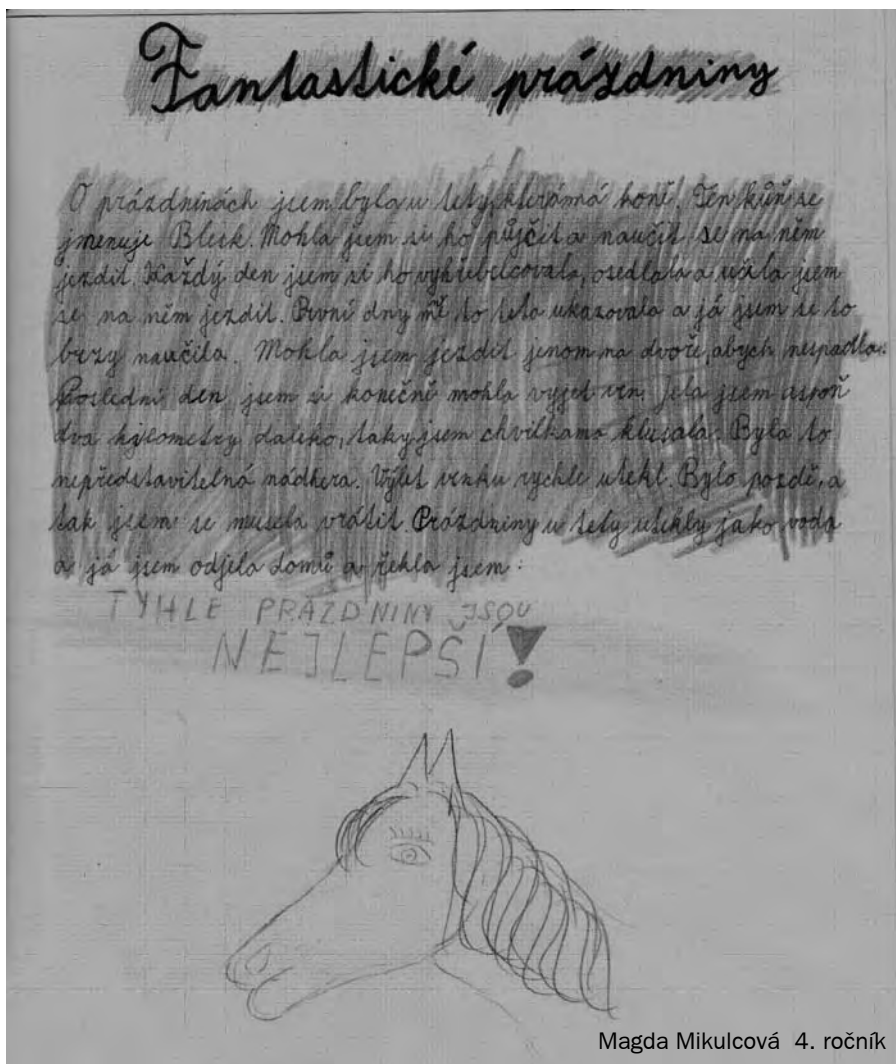 Fantastické prázdniny
O prázdninách jsem byla u tety, která má koně. Ten kůň se
jmenuje Bleck. Mohla jsem si ho půjčit a naučit se na něm
jezdit. Každý den jsem si ho vyhřebelcovala, osedlala a učila jsem
se na něm jezdit. První dny mě to teta ukazovala a já jsem se to
brzy naučila. Mohla jsem jezdit jenom na dvoře, abych nespadla.
Poslední den jsem si konečně mohla vyjet ven. Jela jsem aspoň
dva kylometry daleko, taky jsem chvilkama klusala. Byla to
nepředstavitelná nádhera. Výlet venku rychle utekl. Bylo pozdě, a
tak jsem se musela vrátit. Prázdniny u tety utekly jako voda
a já jsem odjela domů a řekla jsem:
TYHLE PRÁZDNINY JSOU
NEJLEPŠÍ!
Magda Mikulcová 4. ročník